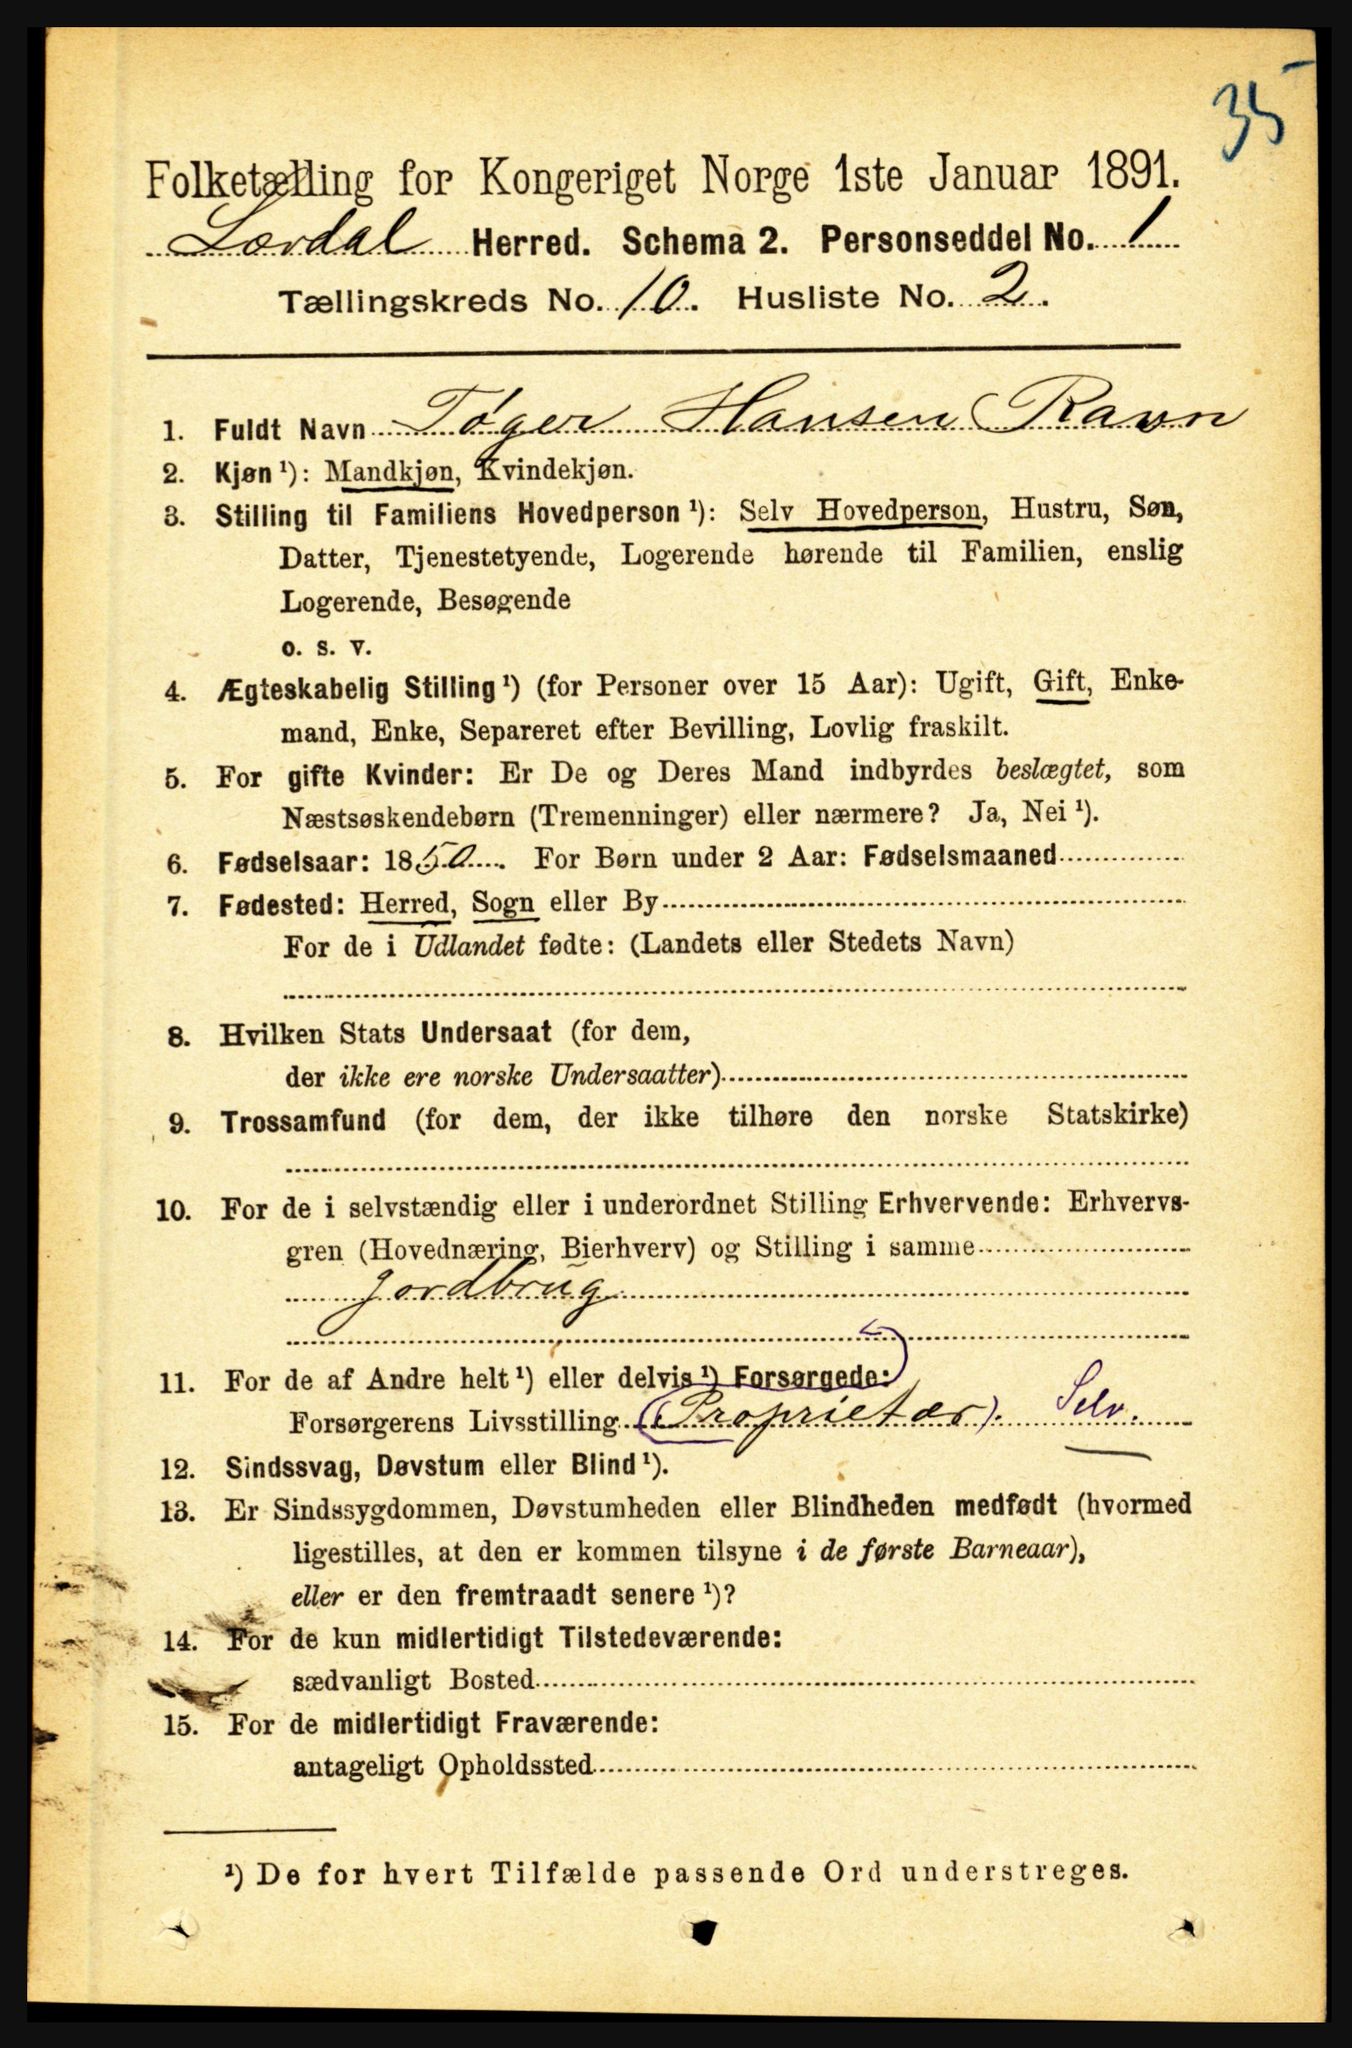 35
Folketælling for Kongeriget Norge 1ste Januar 1891.
Lærdal Herred. Schema 2. Personseddel No. 1
Tællingskreds No. 10. Husliste No. 2.
1. Fuldt Navn Tøger Hansen Ravn
2. Kjøn ¹): Mandkjøn, Kvindekjøn.
3. Stilling til Familiens Hovedperson ¹): Selv Hovedperson, Hustru, Søn,
Datter, Tjenestetyende, Logerende hørende til Familien, enslig
Logerende, Besøgende
o. s. v.
4. Ægteskabelig Stilling ¹) (for Personer over 15 Aar): Ugift, Gift, Enke-
mand, Enke, Separeret efter Bevilling, Lovlig fraskilt.
5. For gifte Kvinder: Er De og Deres Mand indbyrdes beslægtet, som
Næstsøskendebørn (Tremenninger) eller nærmere? Ja, Nei ¹).
6. Fødselsaar: 1850. For Børn under 2 Aar: Fødselsmaaned
7. Fødested: Herred, Sogn eller By
For de i Udlandet fødte: (Landets eller Stedets Navn)
8. Hvilken Stats Undersaat (for dem,
der ikke ere norske Undersaatter)
9. Trossamfund (for dem, der ikke tilhøre den norske Statskirke)
10. For de i selvstændig eller i underordnet Stilling Erhvervende: Erhvervs-
gren (Hovednæring, Bierhverv) og Stilling i samme
Jordbrug
11. For de af Andre helt ¹) eller delvis ¹) Forsørgede:
Forsørgerens Livsstilling (Proprietær). Selv.
12. Sindssvag, Døvstum eller Blind ¹).
13. Er Sindssygdommen, Døvstumheden eller Blindheden medfødt (hvormed
ligestilles, at den er kommen tilsyne i de første Barneaar),
eller er den fremtraadt senere ¹)?
14. For de kun midlertidigt Tilstedeværende:
sædvanligt Bosted
15. For de midlertidigt Fraværende:
antageligt Opholdssted
¹) De for hvert Tilfælde passende Ord understreges.